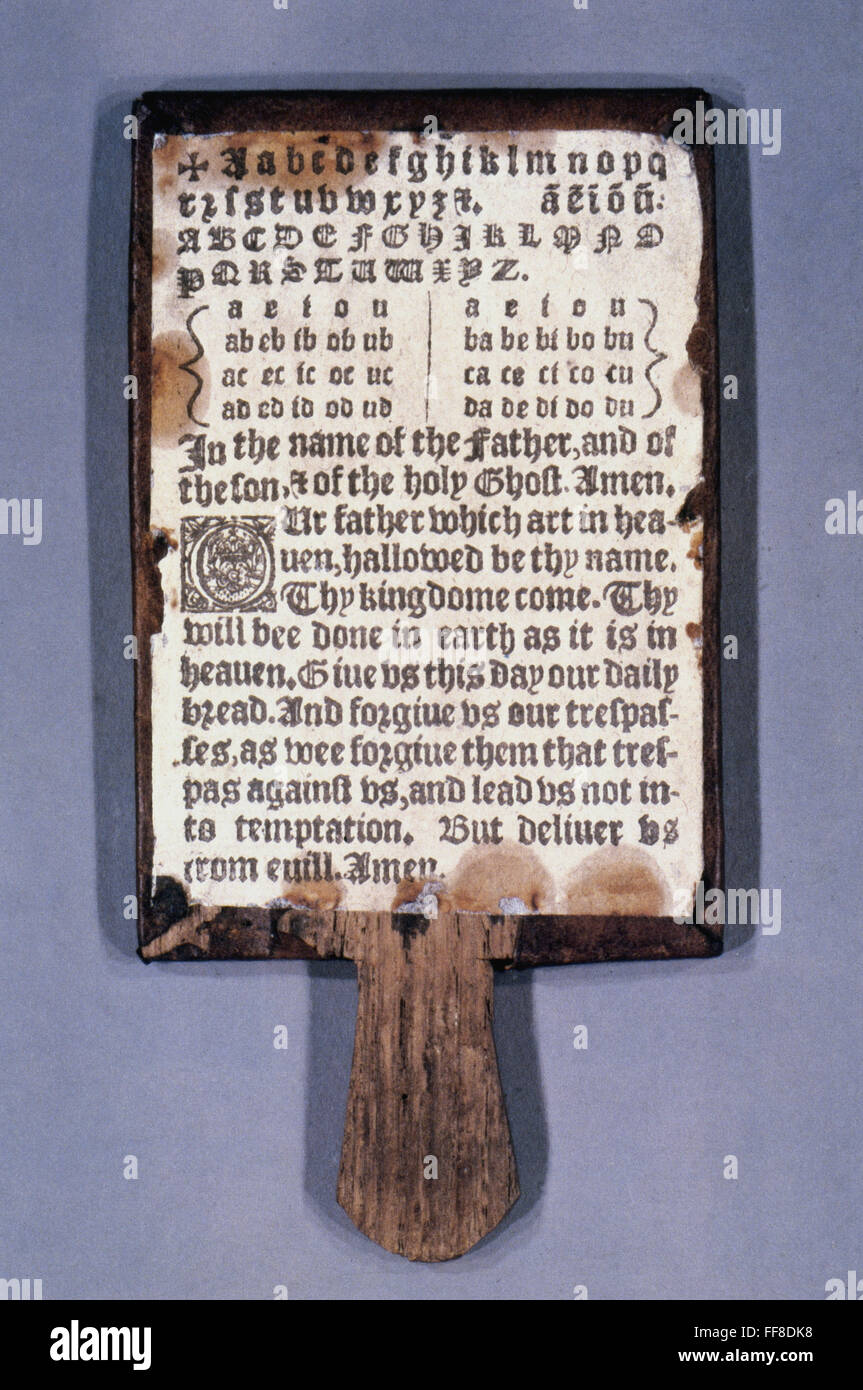 ✠ A a b c d e f g h i k l m n o p q
r ꝛ ſ s t u v w x y z &. ã ẽ ĩ õ ũ:
A B C D E F G H I K L M N O
P Q R S T U W X Y Z.
a e i o u a e i o u
ab eb ib ob ub ba be bi bo bu
ac ec ic oc uc ca ce ci co cu
ad ed id od ud da de di do du
In the name of the Father, and of
the ſon, & of the holy Ghoſt. Amen.
OUr father which art in hea-
uen, hallowed be thy name.
Thy kingdome come. Thy
will bee done in earth as it is in
heauen. Giue vs this day our daily
bꝛead. And foꝛgiue vs our treſpaſ-
ſes, as wee foꝛgiue them that treſ-
pas againſt vs, and lead vs not in-
to temptation. But deliuer vs
from euill. Amen.
alamy
Image ID: FF8DK8
www.alamy.com